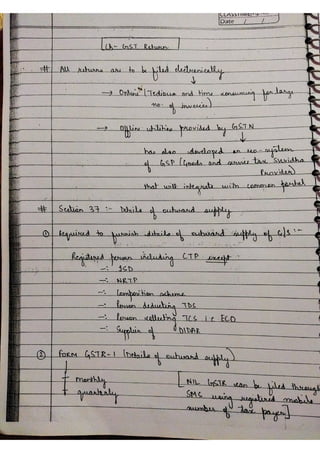 CLASSTIME
Date / /
Ch- GST Return
# All returns are to be filed electronically
→ Online (Tedious and time consuming for large
no. of invoices)
→ Offline utilities provided by GSTN
has also developed an eco-system
of GSP (Goods and service tax Suvidha
Provider)
that will integrate with common portal
# Section 37 :- Details of outward supply
① Required to furnish details of outward supply of G/S :-
Registered person including CTP except
-: ISD
-: NRTP
-: Composition scheme
-: Person deducting TDS
-: Person collecting TCS i.e ECO
-: Supplier of OIDAR
② FORM GSTR-1 (Details of outward supply)
monthly
quarterly
[NIL GSTR can be filed through
SMS using registered mobile
number of tax payer]